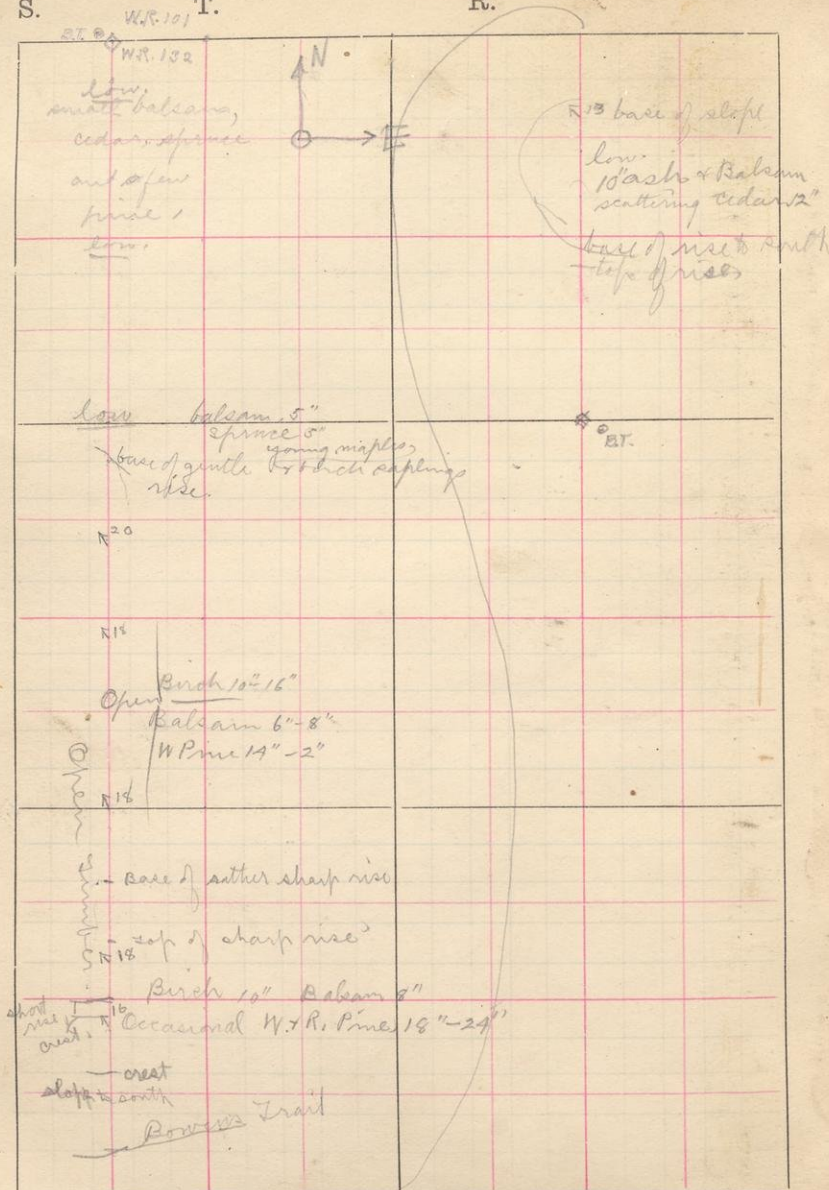 S. T. R.
W.R. 101
B.T.
W.R. 132
N
E
low.
small balsams,
cedar, spruce
and a few
pine
low.
13 base of slope
low.
10" ash & Balsam
scattering cedar 12"
base of rise to south
top of rise
low balsam 5"
spruce 5"
young maples,
base of gentle & birch saplings
rise.
B.T.
20
18
Open Birch 10"-16"
Balsam 6"-8"
W Pine 14"-2"
18
Open Timber
- Base of rather sharp rise
- top of sharp rise
18
Birch 10" Balsam 8"
short
rise &
crest.
16
Occasional W. & R. Pine 18"-24"
- crest
slope to south
Trail